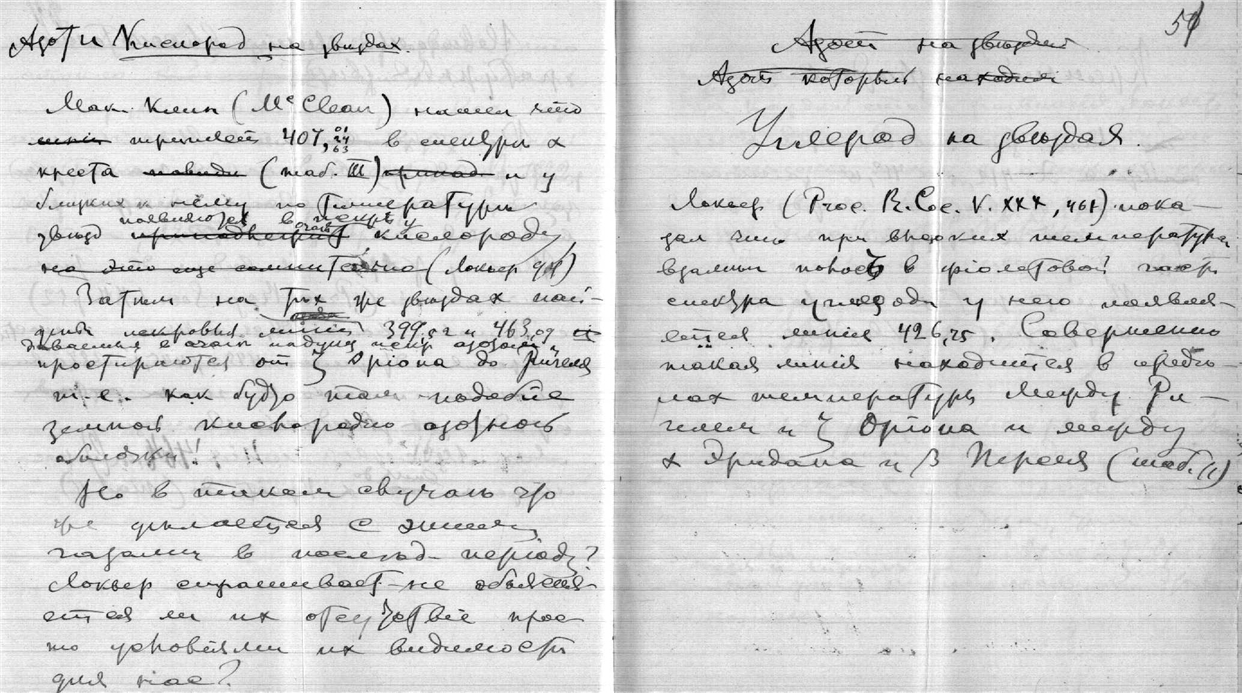 Азот и Кислород на звѣздах.
Мак. Клин (McClean) нашел что
триплет 407, 01 24 63 в спектрѣ α
креста (таб. III) и у
близких к нему по температурѣ
появляются в искрѣ
звѣзд кислороду
на это еще сомнительно (Локьер
Затѣм на тѣх же звѣздах най-
дены искровыя линіи 399,02 и 463,07
простираются от ζ Оріона до Ригеля
т.е. как будто там подобіе
земной кислородно азотной
оболочки.
Но в таком случаѣ что
же дѣлается с этими
газами в послѣд- періоды?
Локьер спрашивает не объясня-
ется ли их отсутствіе прос-
то условіями их видимости
для нас?
51
Азот на звѣздах
Азот который находил
Углерод на звѣздах.
Локьер (Proc. R. Soc. V. XXX, 461) пока-
зал что при высоких температурах
взамѣн полос в фіолетовой части
спектра углерода у него появля-
ется линія 426,75. Совершенно
такая линія находится в предѣ-
лах температуры между Ри-
гелем и ζ Оріона и между
α Эридана и β Персея (таб. II)